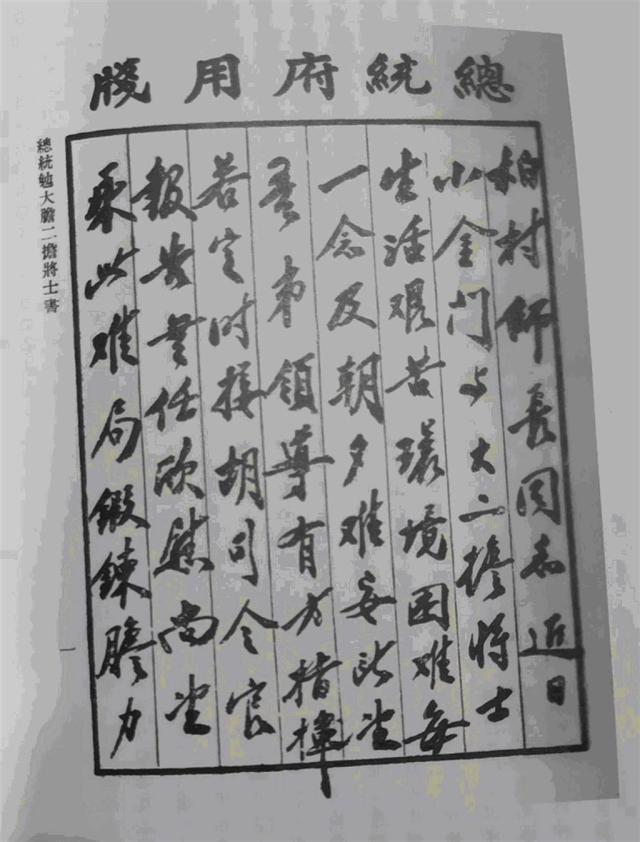 總統府用牋
柏村師長同志近日
小金门与大二擔將士
生活艰苦環境困难每
一念及朝夕难安所望
吾弟領導有方指揮
若定时接胡司令官
報告無任欣慰尚望
乘此难局鍛鍊膽力
總統勉大膽二擔將士書
一